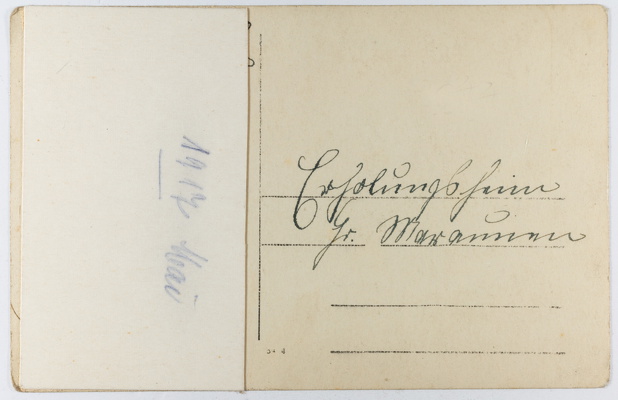 1917 Mai
Erholungsheim
Gr. Maraunen